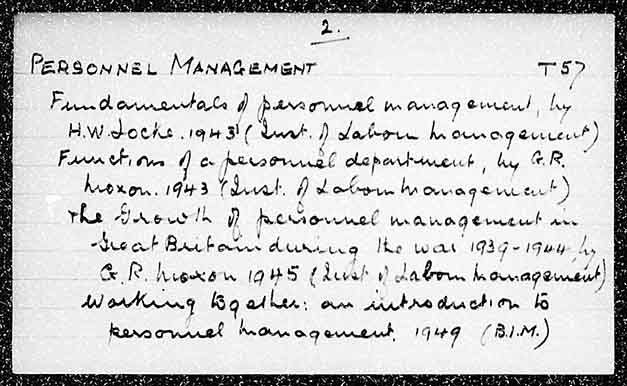 2.
PERSONNEL MANAGEMENT T57
Fundamentals of personnel management, by
H.W. Locke. 1943 (Inst. of Labour Management)
Functions of a personnel department, by G.R.
Moxon. 1943 (Inst. of Labour Management)
The Growth of personnel management in
Great Britain during the war 1939-1944, by
G.R. Moxon 1945 (Inst of Labour Management)
Working together: an introduction to
personnel management. 1949 (B.I.M.)